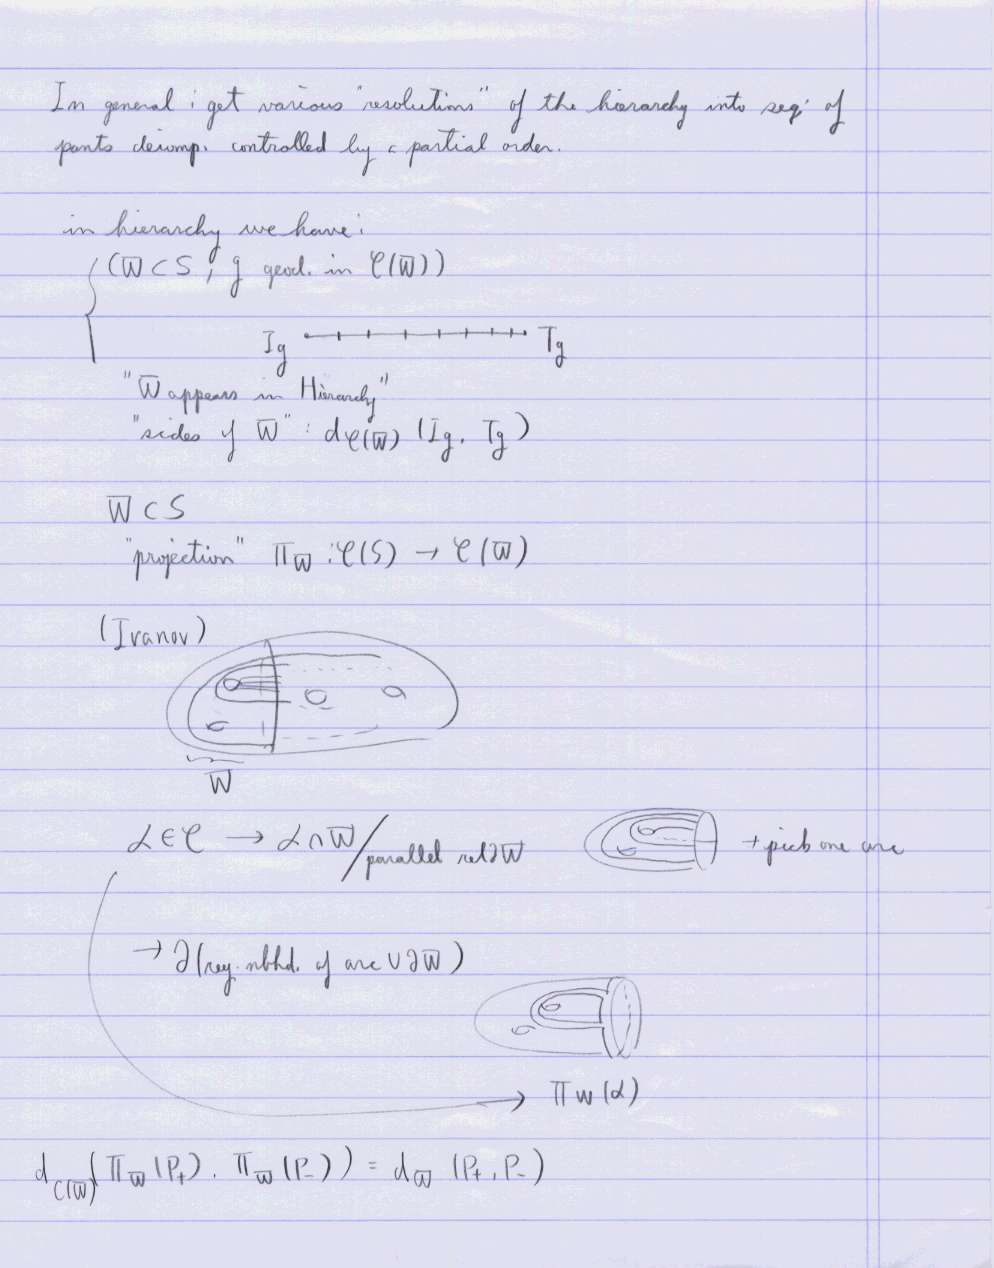 In general : get various "resolutions" of the hierarchy into seq. of
pants decomp. controlled by a partial order.
in hierarchy we have:
(W̅ ⊂ S, g geod. in C(W̅))
I_g T_g
"W̅ appears in Hierarchy"
"sides of W̅" : d_C(W̅) (I_g, T_g)
W̅ ⊂ S
"projection" π_W̅ : C(S) → C(W̅)
(Ivanov)
W̅
α ∈ C → α ∩ W̅ / parallel rel ∂W̅ + pick one arc
→ ∂(reg. nbhd. of arc ∪ ∂W̅)
π_W (α)
d_C(W̅) (π_W̅ (P₊), π_W̅ (P₋)) = d_W̅ (P₊, P₋)